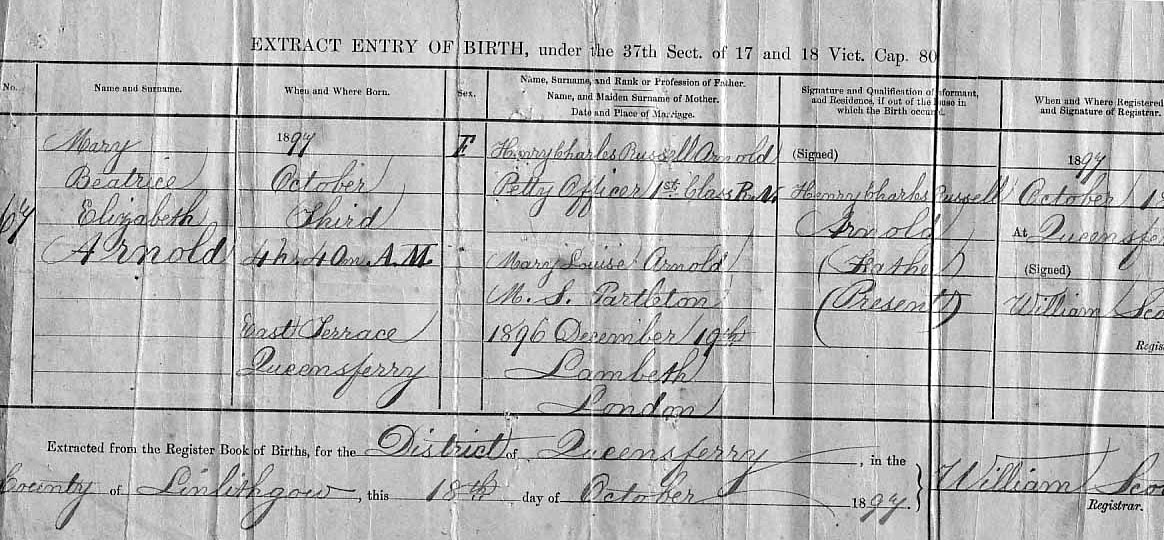 EXTRACT ENTRY OF BIRTH, under the 37th Sect. of 17 and 18 Vict. Cap. 80
No.
Name and Surname.
When and Where Born.
Sex.
Name, Surname, and Rank or Profession of Father.
Name, and Maiden Surname of Mother.
Date and Place of Marriage.
Signature and Qualification of Informant,
and Residence, if out of the House in
which the Birth occurred.
When and Where Registered
and Signature of Registrar.
Mary
Beatrice
Elizabeth
Arnold
1897
October
Third
4h. 40m. A.M.
East Terrace
Queensferry
F
Henry Charles Russell Arnold
Petty Officer 1st Class R.N.
Mary Louise Arnold
M. S. Partleton
1896 December 19th
Lambeth
London
(Signed)
Henry Charles Russell
Arnold
(Father)
(Present)
1897
October
At Queensfe
(Signed)
William Sco
Regis
Extracted from the Register Book of Births, for the District of Queensferry, in the
County of Linlithgow, this 18th day of October 1897.
William Sco
Registrar.